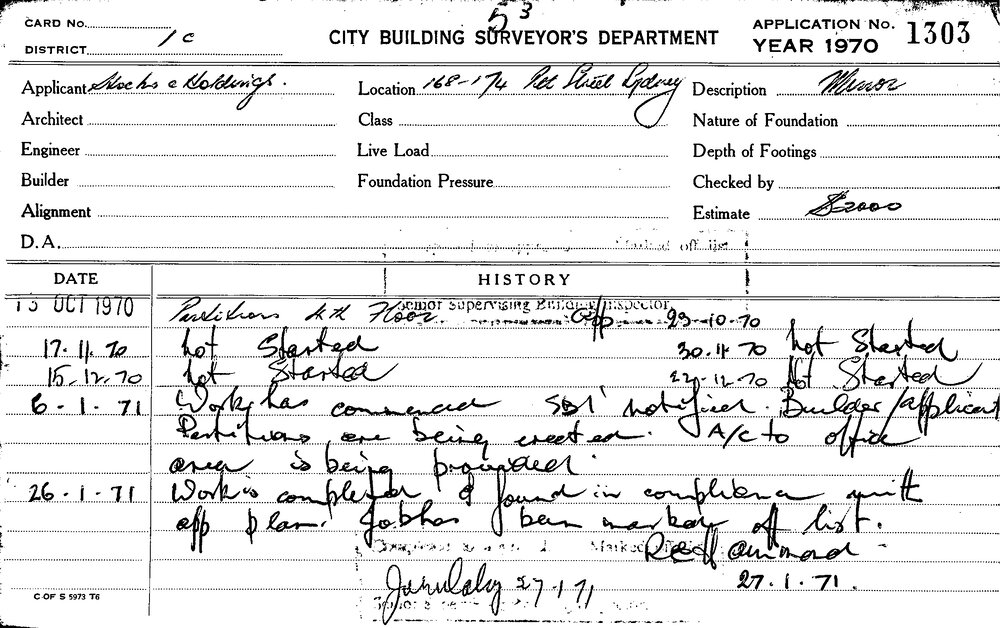 53
CARD No.
DISTRICT 1 c
CITY BUILDING SURVEYOR'S DEPARTMENT
APPLICATION No. 1303
YEAR 1970
Applicant Stocks & Holdings. Location 168-174 Pitt Street Sydney Description Minor
Architect Class Nature of Foundation
Engineer Live Load Depth of Footings
Builder Foundation Pressure Checked by
Alignment Estimate $2000
D.A. Marked off list
DATE HISTORY
Senior Supervising Building Inspector
13 OCT 1970 Partitions 4th Floor App 29-10-70
17.11.70 Not Started 30.11.70 Not Started
15.12.70 Not Started 22-12-70 Not Started
6.1.71 Work has commenced SBI notified. Builder/applicant
Partitions are being erected. A/c to office
area is being provided.
26.1.71 Work is completed & found in compliance with
app plan. Job has been marked off list.
Completed Marked off
27.1.71.
27-1-71
C OF S 5973 T6